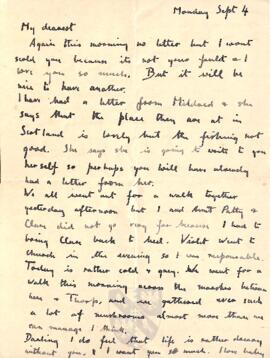 Monday Sept 4
My dearest
Again this morning no letter but I wont
scold you because its not your fault & I
love you so much. But it will be
nice to have another.
I have had a letter from Mildred & she
says that the place they are at in
Scotland is lovely but the fishing not
good. She says she is going to write to you
herself so perhaps you will have already
had a letter from her.
We all went out for a walk together
yesterday afternoon but I and Aunt Patty &
Clare did not go very far because I had to
bring Clare back to bed. Violet went to
church in the evening so I was responsible.
Today is rather cold & grey. We went for a
walk this morning across the marshes between
here & Thorpe, and we gathered even such
a lot of mushrooms almost more than we
can manage I think.
Darling I do feel that life is rather dreary
without you & I want you so much. I love